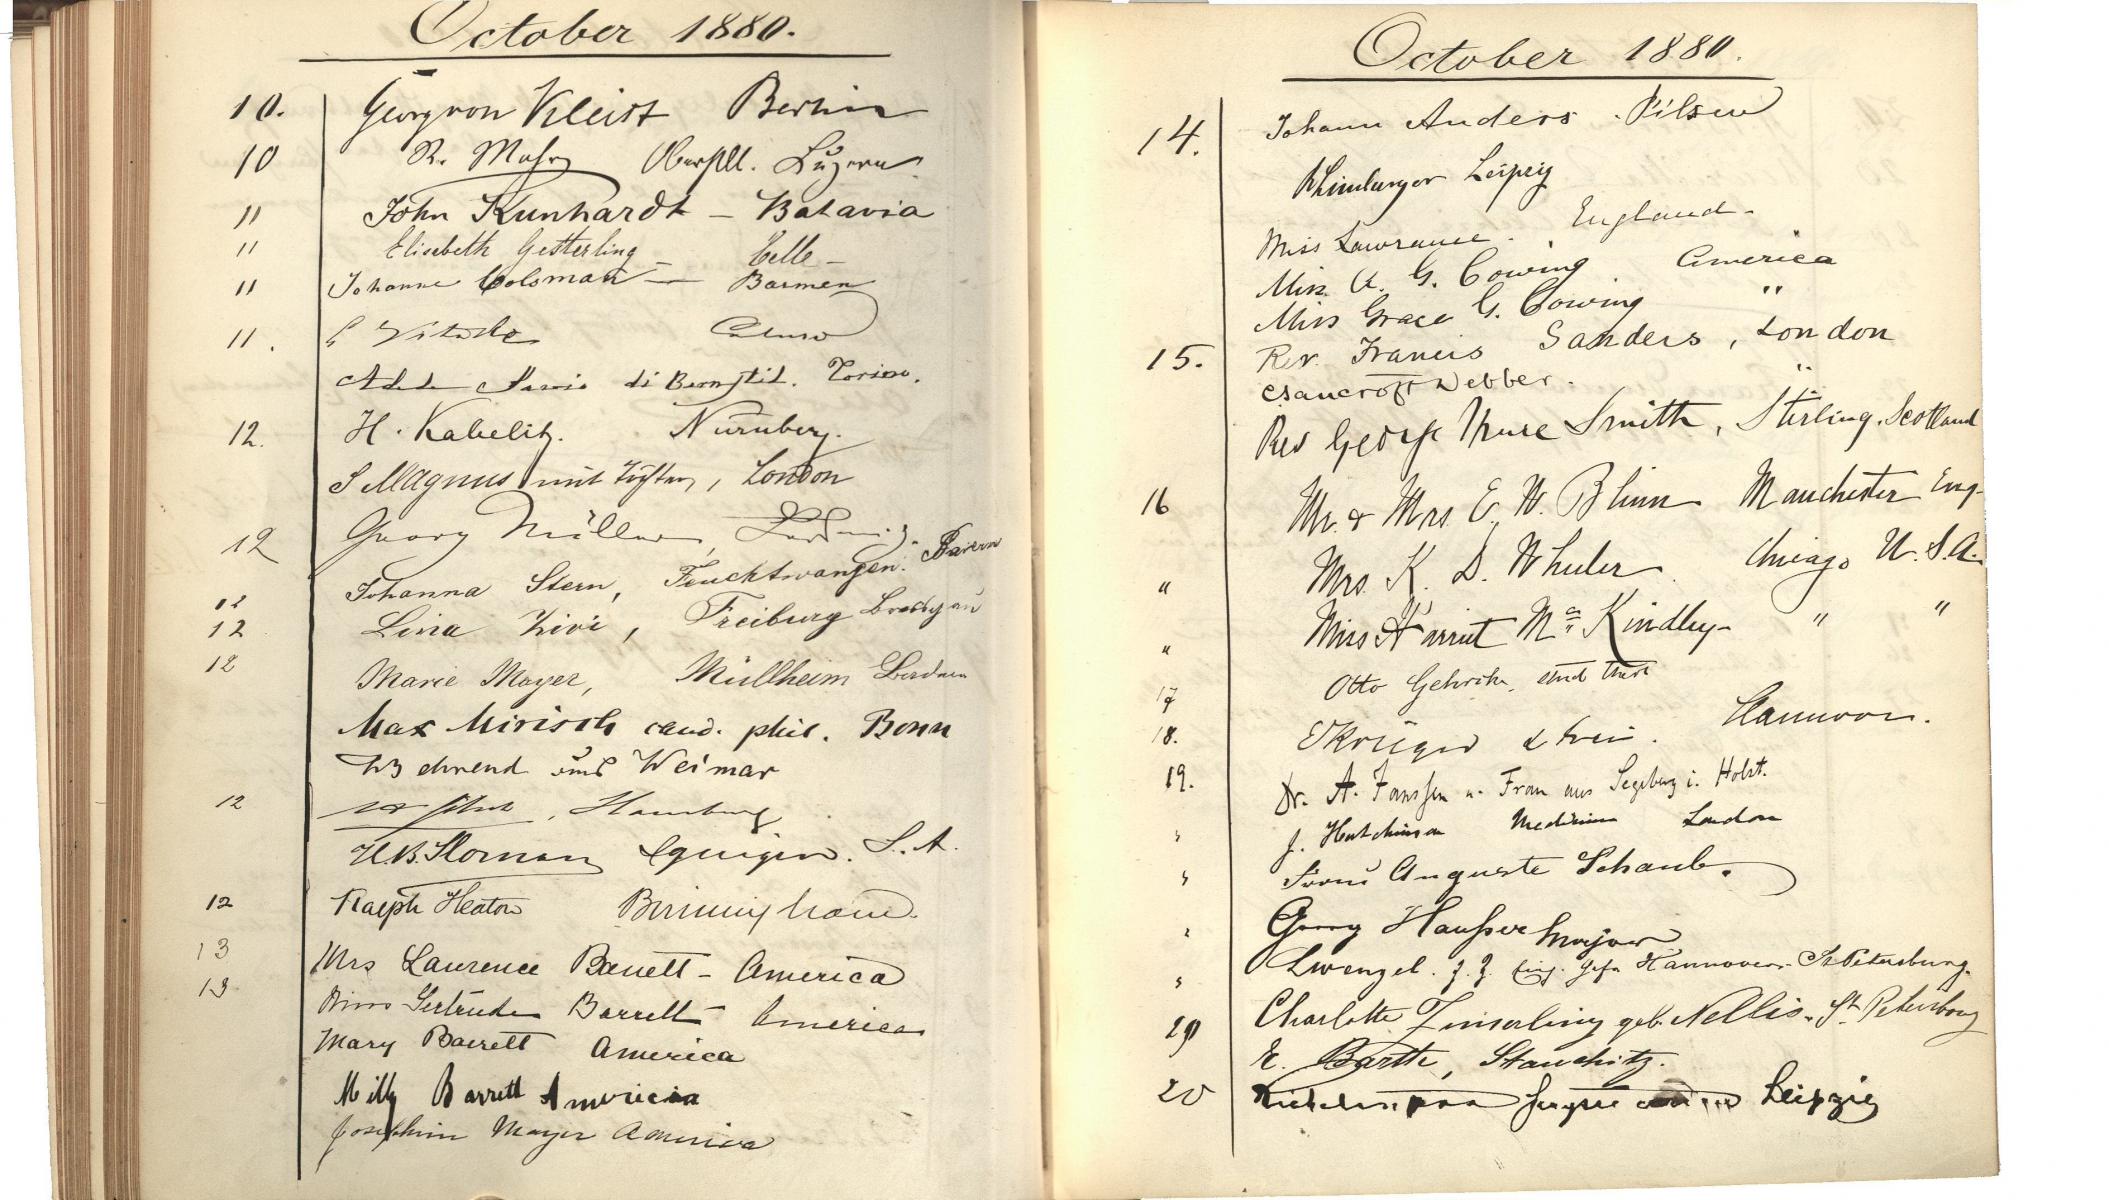 October 1880.
10. Georg von Kleist Berlin
10 R. Mohr Luzern.
11 John Kunhardt - Batavia
11 Elisabeth Gesterling - Celle -
11 Johanne Colsman - Barmen
11.
di Torino.
12. H. Kabelitz. Nürnberg.
S Magnus mit Tochter, London
12 Georg Müller,
Johanna Stern, Feuchtwangen. Baiern
12
12 Lina Zivi, Freiburg Breisgau
12 Marie Mayer, Müllheim Baden
Max Mirisch cand. phil. Bonn
Wehrend aus Weimar
12 , Hamburg
H.B. Sloman S. A.
12 Ralph Heaton Birmingham.
13 Mrs Laurence Barrett - America
13 Miss Gertrude Barrett America
Mary Barrett America
Milly Barrett America
Josephine Mayer America
October 1880.
14. Johann Anders. Pilsen
Limburger Leipzig
Miss Lawrance. England -
Miss A. G. Cowing America
Miss Grace G. Cowing "
15. Rev. Francis Sanders, London
Bancroft Webber. "
Rev George Mure Smith, Stirling. Scotland
16 Mr. & Mrs. E. W. Blinn Manchester Eng.
" Mrs. K. D. Wheeler Chicago U.S.A.
" Miss Harriet Mc Kindley - " "
17 Otto Gehrcke, stud
18. Krüger & Frau. Hannover.
19. Dr. A. Janssen u. Frau aus Segeberg i. Holst.
" J. Hutchinson London
" Auguste Schaub.
" Georg Hausser Major
" Lwengel. z. Z. Hannover. St Petersburg.
20 Charlotte Zinserling geb. Nellis. St. Petersburg
E. Barth, Stauchitz.
20 Leipzig